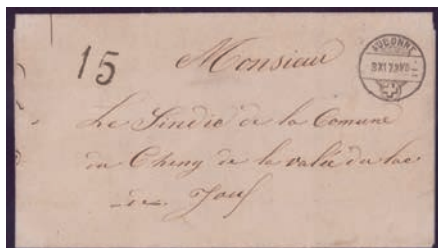 15
Monsieur
AUBONNE
Le Sindic de la Comune
du Cheny de la valée du lac
de Joux